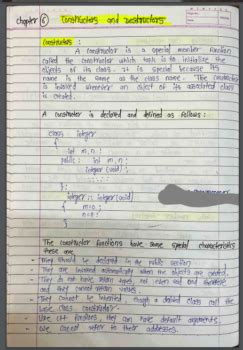 chapter 6 Constructors and Destructors
Constructors :
A constructor is a special member function
called the constructor which task is to initialise the
objects of its class. It is special because its
name is the same as the class name. The constructor
is invoked whenever an object of its associated class
is created.
A constructor is declared and defined as follows :
class Integer
{
int m, n ;
public : int m, n ;
Integer (void) ;
};
integer :: Integer (void)
{ m=0 ;
n=0 ;
}
The constructor functions have some special characteristics
these are
- They should be declared in the public section
- They are invoked automatically when the objects are created.
- They do not have return types, not even void and therefore
and they cannot return values
- They cannot be inherited, though a derived class call the
base class constructor
- Like C++ functions, they can have default arguments.
- We cannot refer to their addresses.